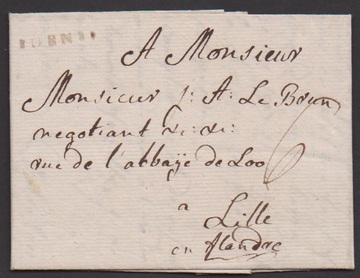 A Monsieur
Monsieur j: A: Le Brun
negotiant &c: &c:
rue de l'abbaÿe de Loo
a
Lille
en flandre